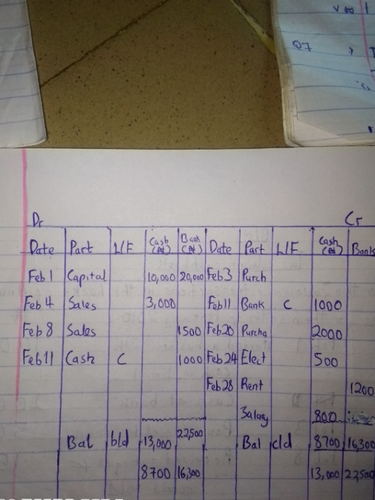 Dr Cr
Date Part L/F Cash (₦) Bank (₦) Date Part L/F Cash (₦) Bank
Feb 1 Capital 10,000 20,000 Feb 3 Purch
Feb 4 Sales 3,000 Feb 11 Bank C 1000
Feb 8 Sales 1500 Feb 20 Purcha 2000
Feb 11 Cash C 1000 Feb 24 Elect 500
Feb 28 Rent 1200
Salary 800
Bal b/d 13,000 22,500 Bal c/d 8700 16,300
8700 16,300 13,000 22,500